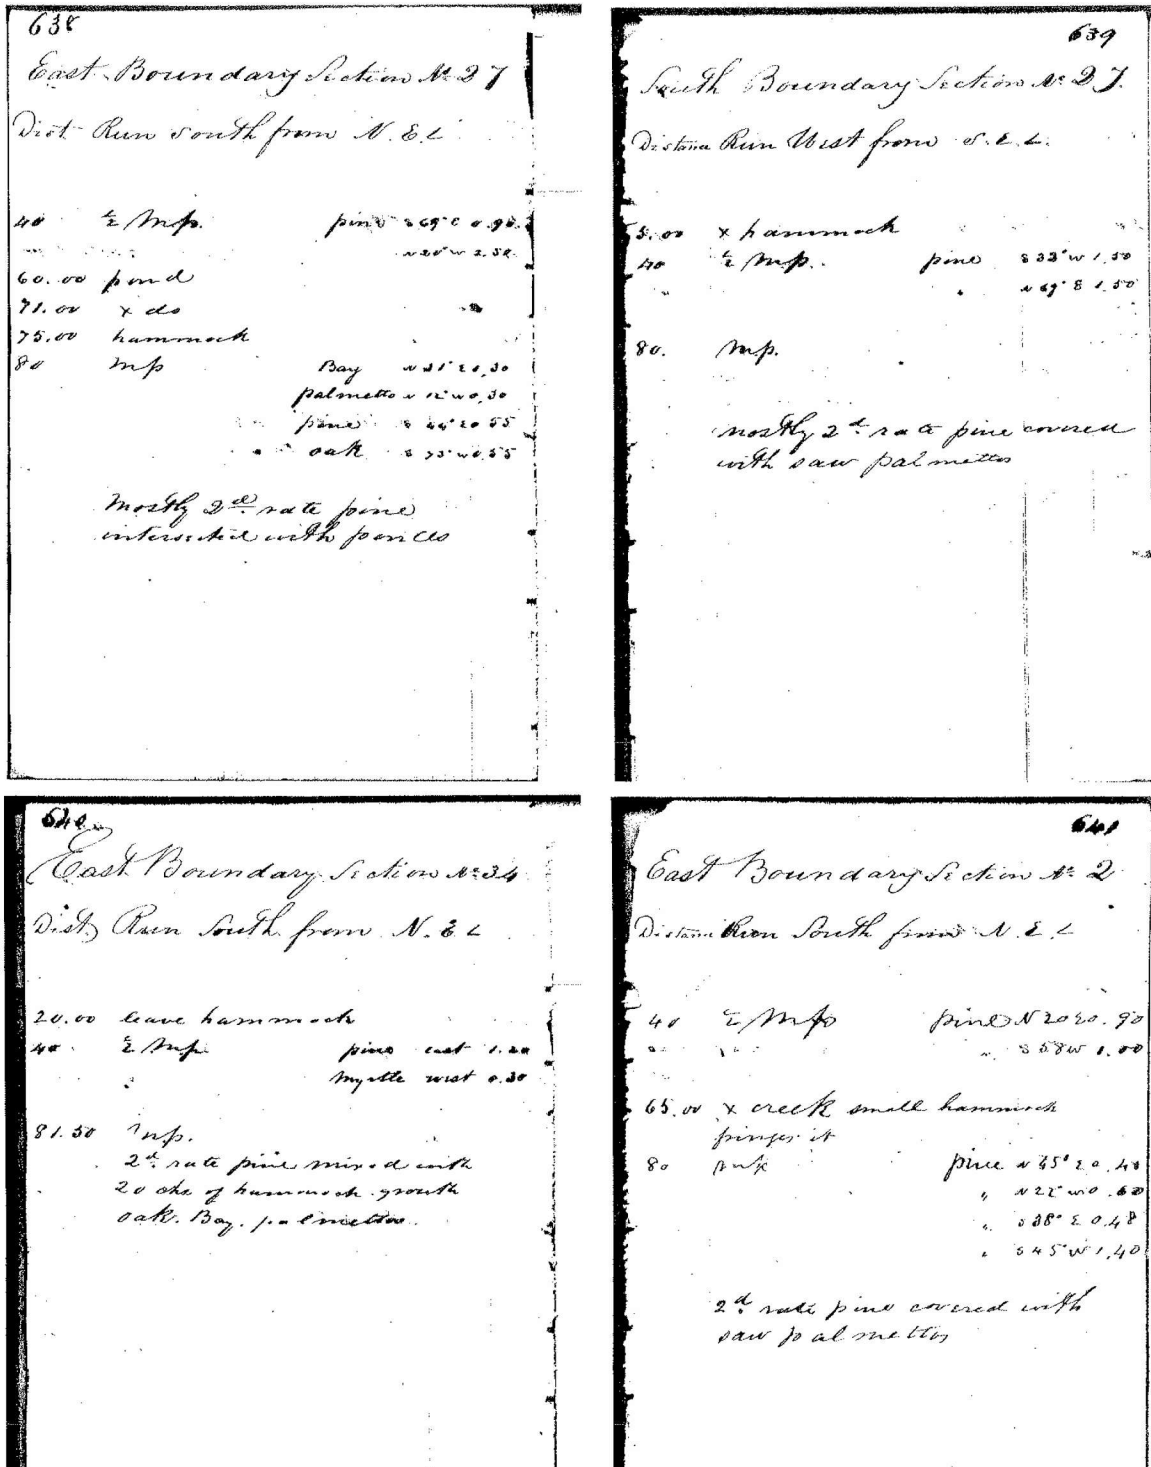 638
East Boundary Section No 27
Dist Run South from N.E.C
40 ½ Mp. pine S 69° E 0.90.
N 20° W 2.50
60.00 pond
71.00 x do
75.00 hammock
80 Mp Bay N 31° E 0.30
palmetto N 12° W 0.30
pine S 44° E 0 55
" oak S 73° W 0.55
Mostly 2d rate pine
intersected with ponds
639
South Boundary Section No 27.
Distance Run West from S.E.C.
5.00 x hammock
40 ½ Mp. pine S 33° W 1.50
" " N 69° E 1.50
80. Mp.
mostly 2d rate pine covered
with saw palmettos
640
East Boundary Section No 34
Dist Run South from N.E.C
20.00 leave hammock
40 ½ Mp. pine east 1.20
" Myrtle west 0.30
81.50 Mp.
2d rate pine mixed with
20 chs of hammock growth
oak. Bay. palmettos.
641
East Boundary Section No 2
Distance Run South from N.E.C
40 ½ Mp pine N 20 E 0.90
" " " S 58 W 1.00
65.00 x creek small hammock
fringes it
80 Mp pine N 35° E 0.40
" N 22° W 0.60
" S 38° E 0.48
" S 45° W 1.40
2d rate pine covered with
saw palmettos